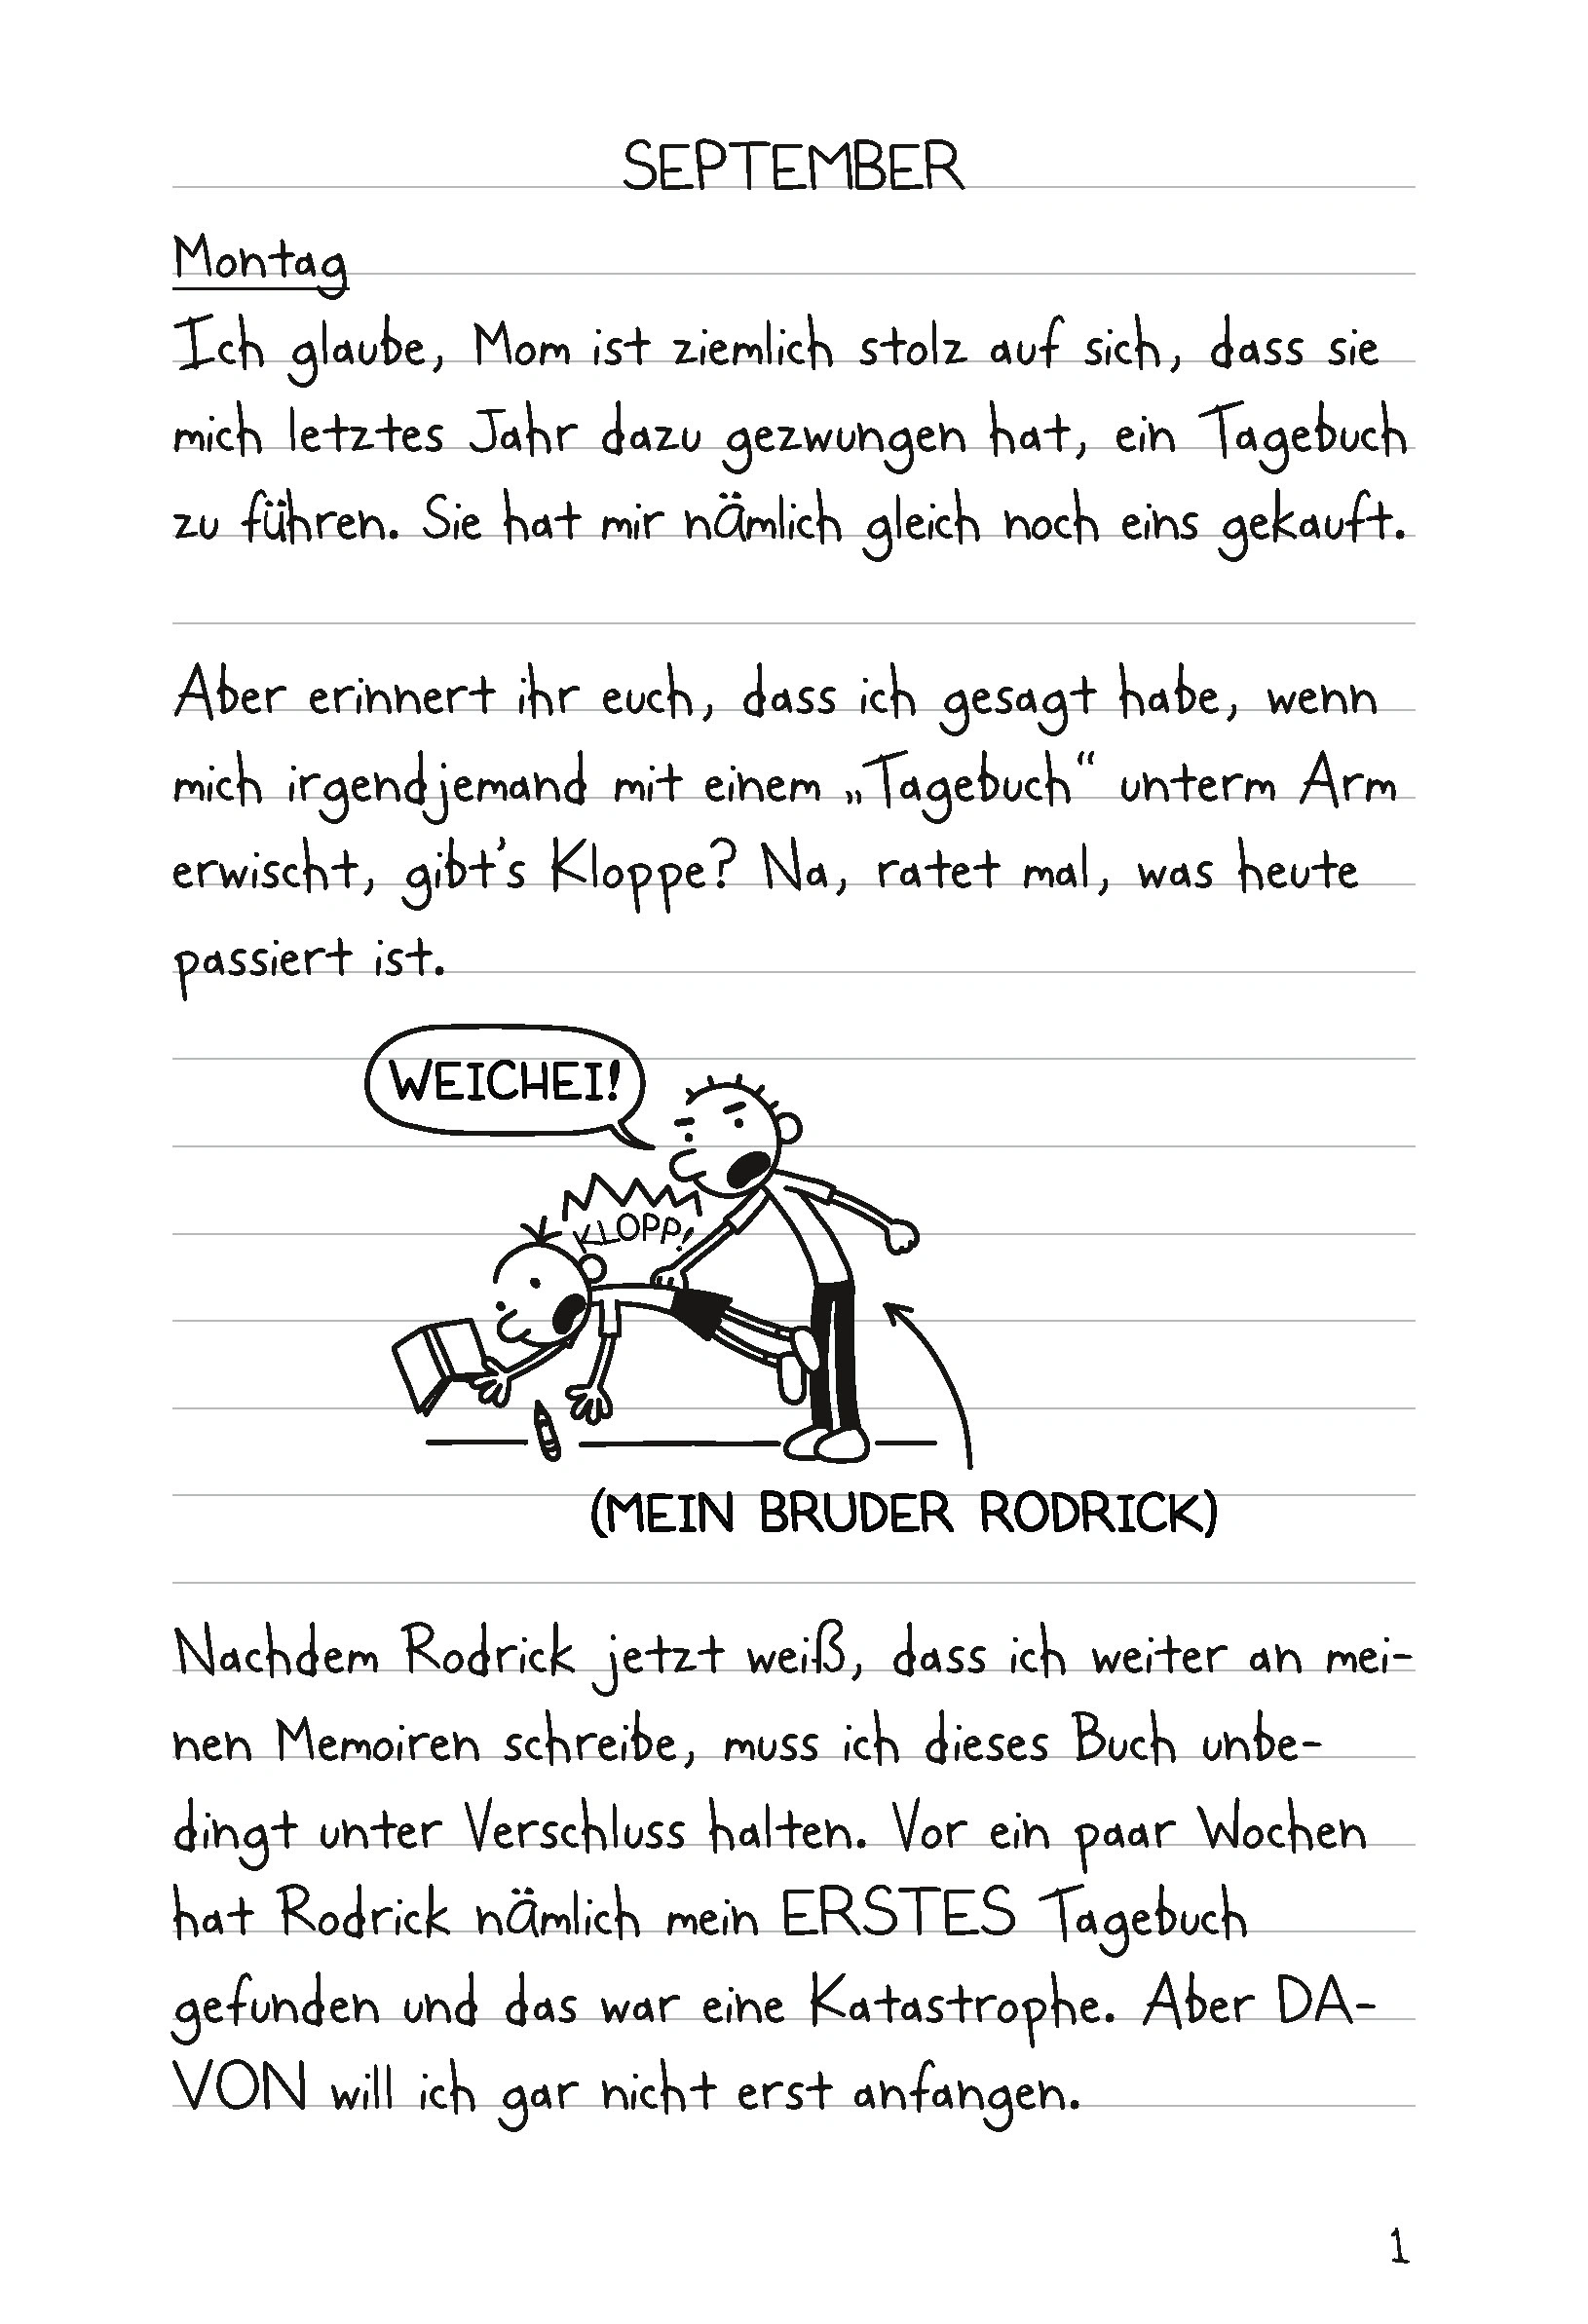 SEPTEMBER
Montag
Ich glaube, Mom ist ziemlich stolz auf sich, dass sie
mich letztes Jahr dazu gezwungen hat, ein Tagebuch
zu führen. Sie hat mir nämlich gleich noch eins gekauft.
Aber erinnert ihr euch, dass ich gesagt habe, wenn
mich irgendjemand mit einem „Tagebuch“ unterm Arm
erwischt, gibt's Kloppe? Na, ratet mal, was heute
passiert ist.
WEICHEI!
KLOPP!
(MEIN BRUDER RODRICK)
Nachdem Rodrick jetzt weiß, dass ich weiter an mei-
nen Memoiren schreibe, muss ich dieses Buch unbe-
dingt unter Verschluss halten. Vor ein paar Wochen
hat Rodrick nämlich mein ERSTES Tagebuch
gefunden und das war eine Katastrophe. Aber DA-
VON will ich gar nicht erst anfangen.
1